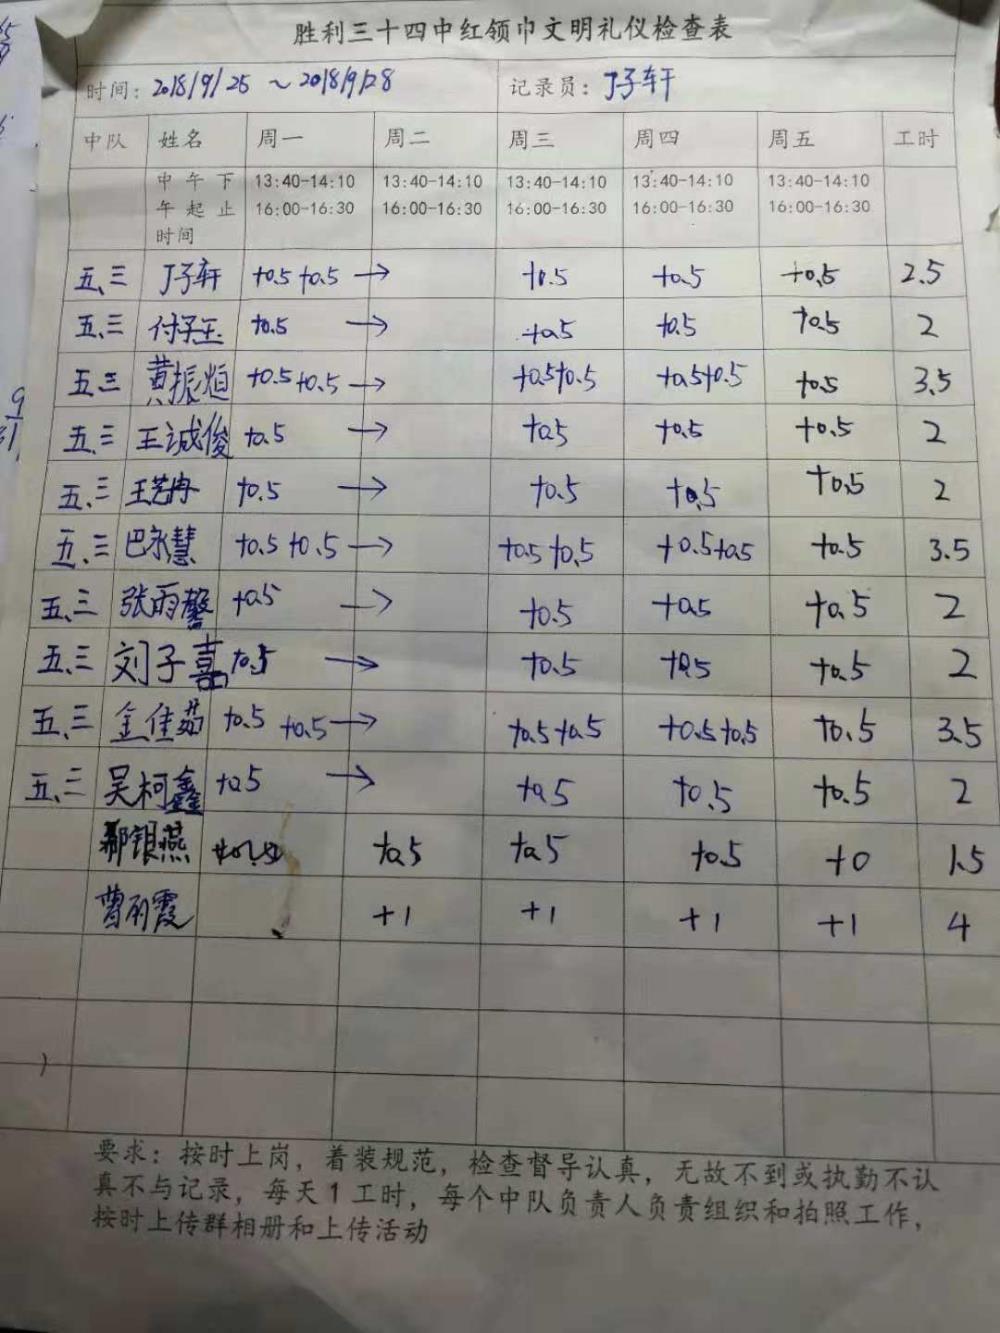 胜利三十四中红领巾文明礼仪检查表
时间：2018/9/25 ~ 2018/9/28 记录员：丁子轩
中队 姓名 周一 周二 周三 周四 周五 工时
中午下 13:40-14:10 13:40-14:10 13:40-14:10 13:40-14:10 13:40-14:10
午起止 16:00-16:30 16:00-16:30 16:00-16:30 16:00-16:30 16:00-16:30
时间
五.三 丁子轩 +0.5 +0.5 → +0.5 +0.5 +0.5 2.5
五.三 付子玉 +0.5 → +0.5 +0.5 +0.5 2
五.三 黄振烜 +0.5 +0.5 → +0.5 +0.5 +0.5 +0.5 +0.5 3.5
五.三 王诚俊 +0.5 → +0.5 +0.5 +0.5 2
五.三 王艺冉 +0.5 → +0.5 +0.5 +0.5 2
五.三 巴永慧 +0.5 +0.5 → +0.5 +0.5 +0.5 +0.5 +0.5 3.5
五.三 张雨馨 +0.5 → +0.5 +0.5 +0.5 2
五.三 刘子嘉 +0.5 → +0.5 +0.5 +0.5 2
五.三 金佳茹 +0.5 +0.5 → +0.5 +0.5 +0.5 +0.5 +0.5 3.5
五.三 吴柯鑫 +0.5 → +0.5 +0.5 +0.5 2
银燕 +0.5 +0.5 +0.5 +0 1.5
曹丽霞 +1 +1 +1 +1 4
要求：按时上岗，着装规范，检查督导认真，无故不到或执勤不认
真不与记录，每天1工时，每个中队负责人负责组织和拍照工作，
按时上传群相册和上传活动